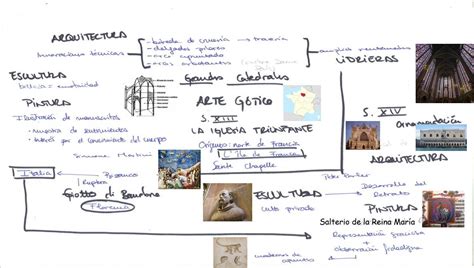 ARQUITECTURA
Innovaciones técnicas
bóveda de crucería → tracería
delgados pilares
arco apuntado
arcos arbotantes
amplios ventanales
VIDRIERAS
Grandes Catedrales
ESCULTURA
belleza = emotividad
PINTURA
Ilustración de manuscritos
muestra de sentimientos
interés por el conocimiento del cuerpo
Simone Martini
ARTE GÓTICO
S. XIII
LA IGLESIA TRIUNFANTE
Orígenes: norte de Francia
L'Île de France
Sainte Chapelle
S. XIV
Ornamentación
ARQUITECTURA
Italia
Bizancio
Ruptura
Giotto di Bondone
Florencia
ESCULTURA
culto privado
Peter Parler
Desarrollo del
Retrato
PINTURA
Salterio de la Reina María
Representación
+
observación
cuadernos de
apuntes